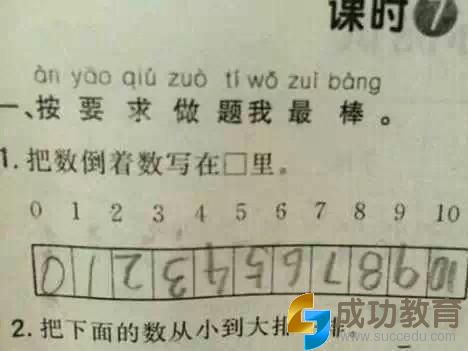 课时 7
àn yāo qiú zuò tí wǒ zuì bàng
一、按 要 求 做 题 我 最 棒 。
1. 把数倒着数写在□里。
0 1 2 3 4 5 6 7 8 9 10
0 1 2 3 4 5 6 7 8 9 10
2. 把下面的数从小到大排
成功教育
www.succedu.com